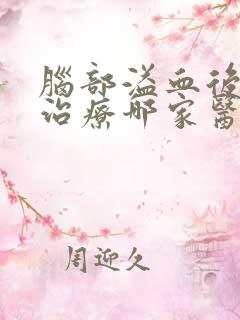 腦部溢血後
治療哪家醫
周迎久